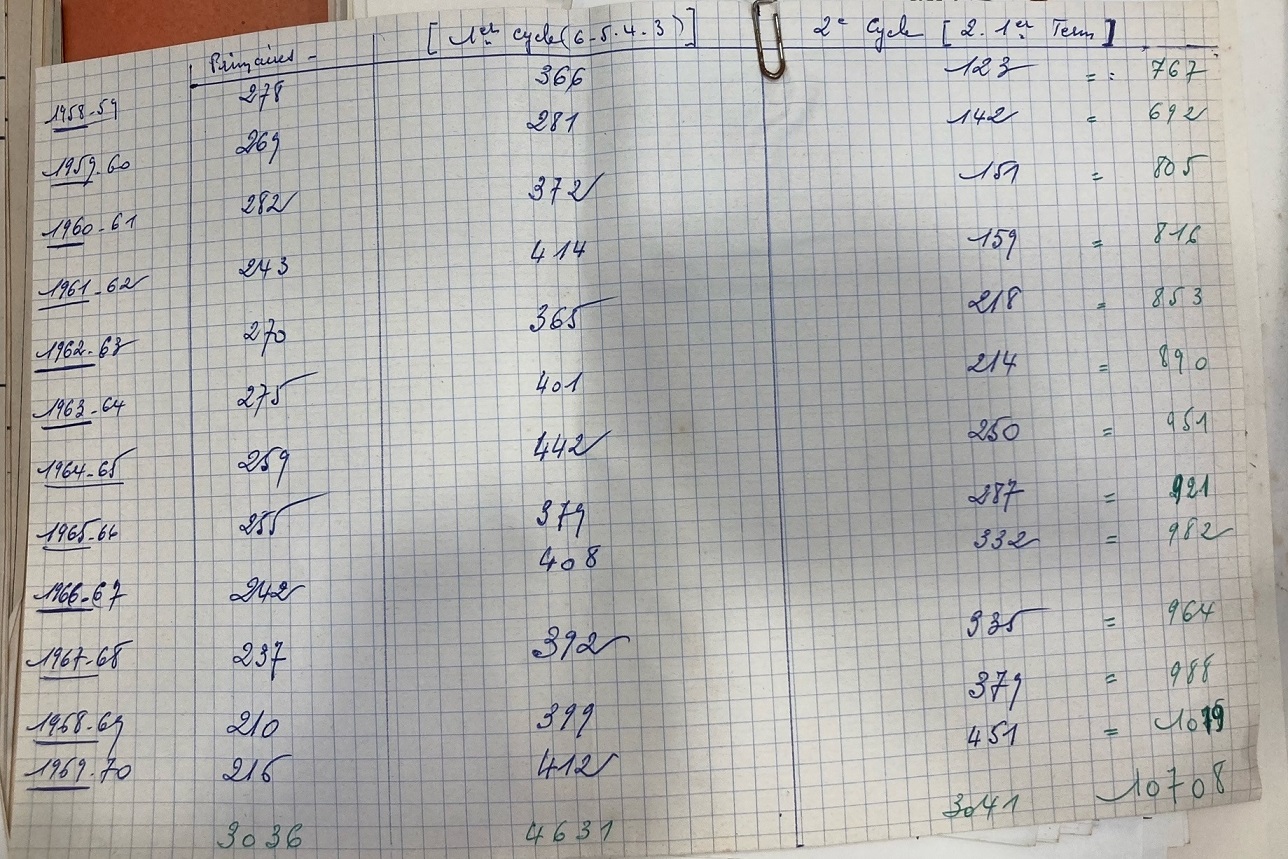 Primaires - [ 1er Cycle (6.5.4.3) ] 2e Cycle [ 2. 1er Term ]
1958-59 278 366 123 = : 767
1959.60 269 281 142 = 692
1960-61 282 372 151 = 805
1961-62 243 414 159 = 816
1962-63 270 365 218 = 853
1963-64 275 401 214 = 890
1964-65 259 442 250 = 951
1965-66 255 379 287 = 921
1966-67 242 408 332 = 982
1967-68 237 392 335 = 964
1968-69 210 399 379 = 988
1969-70 216 412 451 = 1079
3036 4631 3041 10708